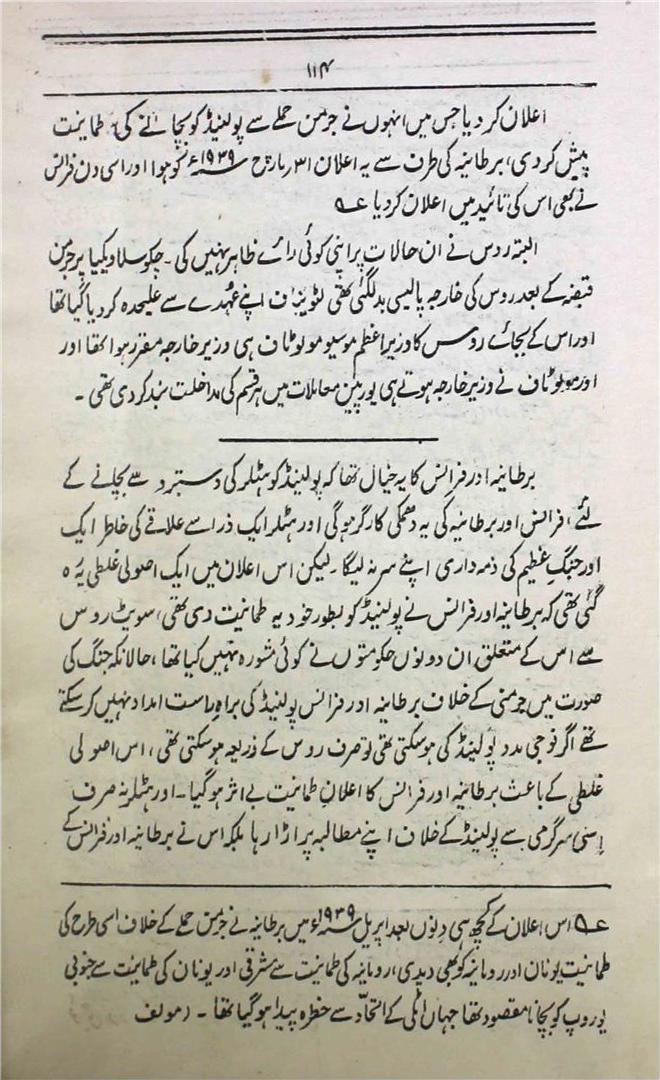 ۱۱۴
اعلان کر دیا جس میں انہوں نے جرمن حملے سے پولینڈ کو بچانے کی طمانیت
پیش کر دی، برطانیہ کی طرف سے یہ اعلان ۳۱ مارچ ۱۹۳۹ء کو ہوا اور اسی دن فرانس
نے بھی اس کی تائید میں اعلان کر دیا عہ
البتہ روس نے ان حالات پر اپنی کوئی رائے ظاہر نہیں کی۔ چیکوسلاویکیا پر جرمن
قبضہ کے بعد روس کی خارجہ پالیسی بدل گئی تھی لٹویناف اپنے عہدے سے علیحدہ کر دیا گیا تھا
اور اس کے بجائے روس کا وزیر اعظم موسیو مولوٹاف ہی وزیر خارجہ مقرر ہوا تھا اور
اور مولوٹاف نے وزیر خارجہ ہوتے ہی یورپین معاملات میں ہر قسم کی مداخلت بند کر دی تھی۔
برطانیہ اور فرانس کا یہ خیال تھا کہ پولینڈ کو ہٹلر کی دستبرد سے بچانے کے
لئے، فرانس اور برطانیہ کی یہ دھمکی کارگر ہو گی اور ہٹلر ایک ذرا سے علاقے کی خاطر ایک
اور جنگ عظیم کی ذمہ داری اپنے سر نہ لیگا۔ لیکن اس اعلان میں ایک اصولی غلطی یہ رہ
گئی تھی کہ برطانیہ اور فرانس نے پولینڈ کو بطور خود یہ طمانیت دی تھی، سویٹ روس
سے اس کے متعلق ان دونوں حکومتوں نے کوئی مشورہ نہیں کیا تھا، حالانکہ جنگ کی
صورت میں جرمنی کے خلاف برطانیہ اور فرانس پولینڈ کی براہ راست امداد نہیں کر سکتے
تھے اگر فوجی مدد پولینڈ کی ہو سکتی تھی تو صرف روس کے ذریعہ ہو سکتی تھی، اس اصولی
غلطی کے باعث برطانیہ اور فرانس کا اعلان طمانیت بے اثر ہو گیا۔ اور ہٹلر نہ صرف
اسی سرگرمی سے پولینڈ کے خلاف اپنے مطالبہ پر اڑا رہا بلکہ اس نے برطانیہ اور فرانس کے
عہ اس اعلان کے کچھ ہی دنوں بعد اپریل ۱۹۳۹ء میں برطانیہ نے جرمن حملے کے خلاف اسی طرح کی
طمانیت یونان اور رومانیہ کو بھی دیدی، رومانیہ کی طمانیت سے مشرقی اور یونان کی طمانیت سے جنوبی
یوروپ کو بچانا مقصود تھا جہاں اٹلی کے اتحاد سے خطرہ پیدا ہو گیا تھا۔ (مولف